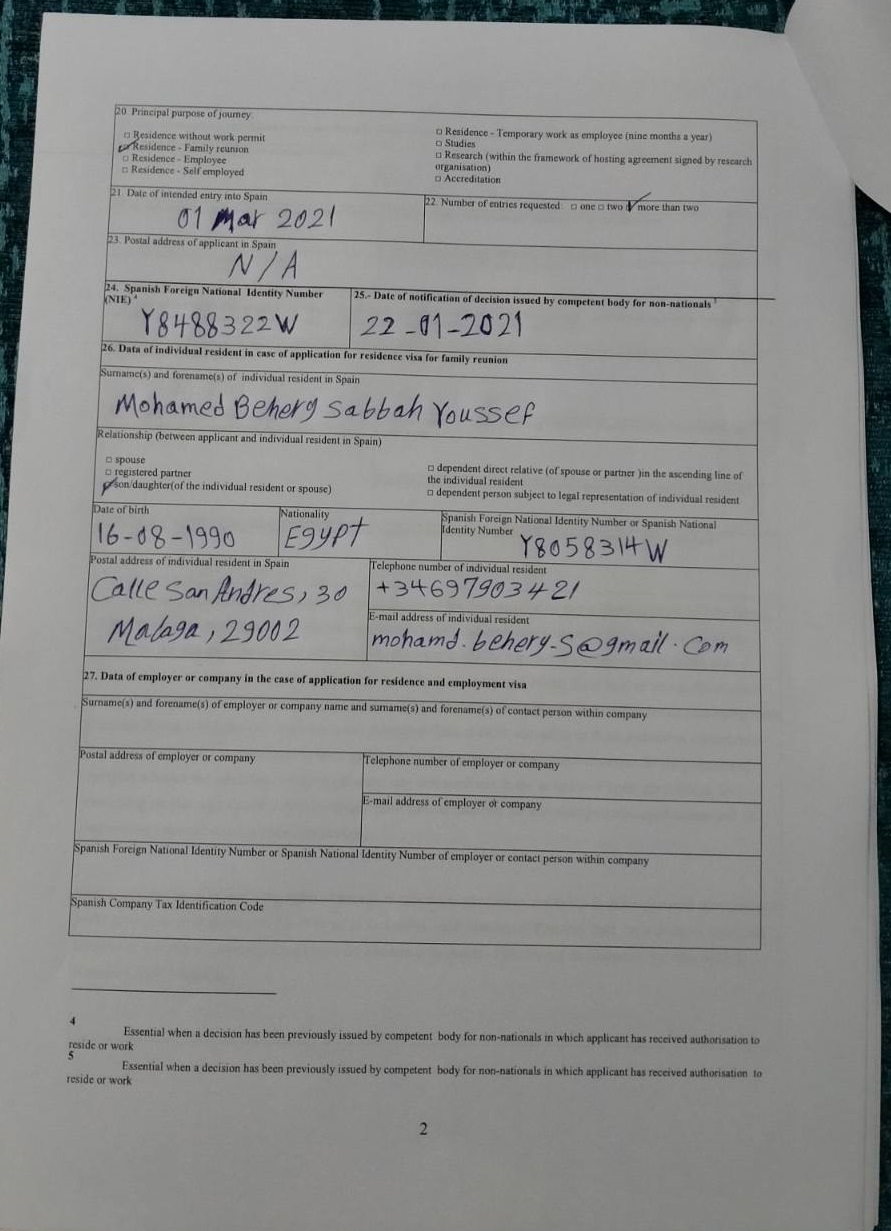 20 Principal purpose of journey
□ Residence without work permit
□ Residence - Family reunion
□ Residence - Employee
□ Residence - Self employed
□ Residence - Temporary work as employee (nine months a year)
□ Studies
□ Research (within the framework of hosting agreement signed by research
organisation)
□ Accreditation
21. Date of intended entry into Spain
01 Mar 2021
22. Number of entries requested □ one □ two □ more than two
23. Postal address of applicant in Spain
N/A
24. Spanish Foreign National Identity Number
(NIE) 4
Y8488322W
25.- Date of notification of decision issued by competent body for non-nationals 5
22-01-2021
26. Data of individual resident in case of application for residence visa for family reunion
Surname(s) and forename(s) of individual resident in Spain
Mohamed Behery Sabbah Youssef
Relationship (between applicant and individual resident in Spain)
□ spouse
□ registered partner
□ son/daughter(of the individual resident or spouse)
□ dependent direct relative (of spouse or partner )in the ascending line of
the individual resident
□ dependent person subject to legal representation of individual resident
Date of birth
16-08-1990
Nationality
Egypt
Spanish Foreign National Identity Number or Spanish National
Identity Number
Y8058314W
Postal address of individual resident in Spain
Calle San Andres, 30
Malaga, 29002
Telephone number of individual resident
+34697903421
E-mail address of individual resident
mohamd.behery-S@gmail.com
27. Data of employer or company in the case of application for residence and employment visa
Surname(s) and forename(s) of employer or company name and surname(s) and forename(s) of contact person within company
Postal address of employer or company
Telephone number of employer or company
E-mail address of employer or company
Spanish Foreign National Identity Number or Spanish National Identity Number of employer or contact person within company
Spanish Company Tax Identification Code
4
Essential when a decision has been previously issued by competent body for non-nationals in which applicant has received authorisation to
reside or work
5
Essential when a decision has been previously issued by competent body for non-nationals in which applicant has received authorisation to
reside or work
2